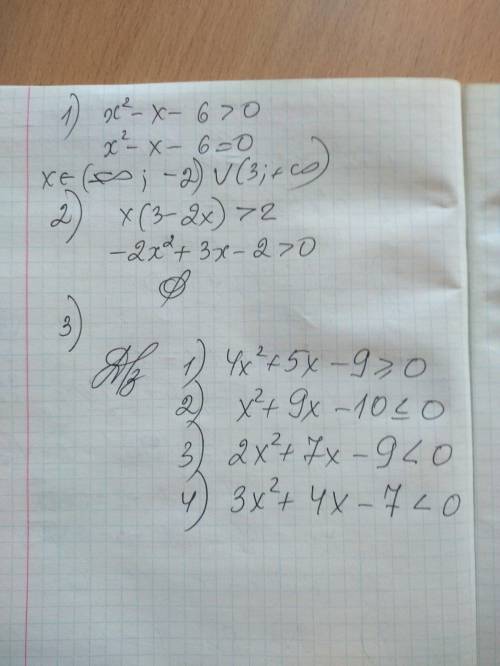 1) x² - x - 6 > 0
x² - x - 6 = 0
x ∈ (-∞; -2) ∪ (3; +∞)
2) x(3 - 2x) > 2
-2x² + 3x - 2 > 0
∅
3)
Д/з 1) 4x² + 5x - 9 ≥ 0
2) x² + 9x - 10 ≤ 0
3) 2x² + 7x - 9 < 0
4) 3x² + 4x - 7 < 0